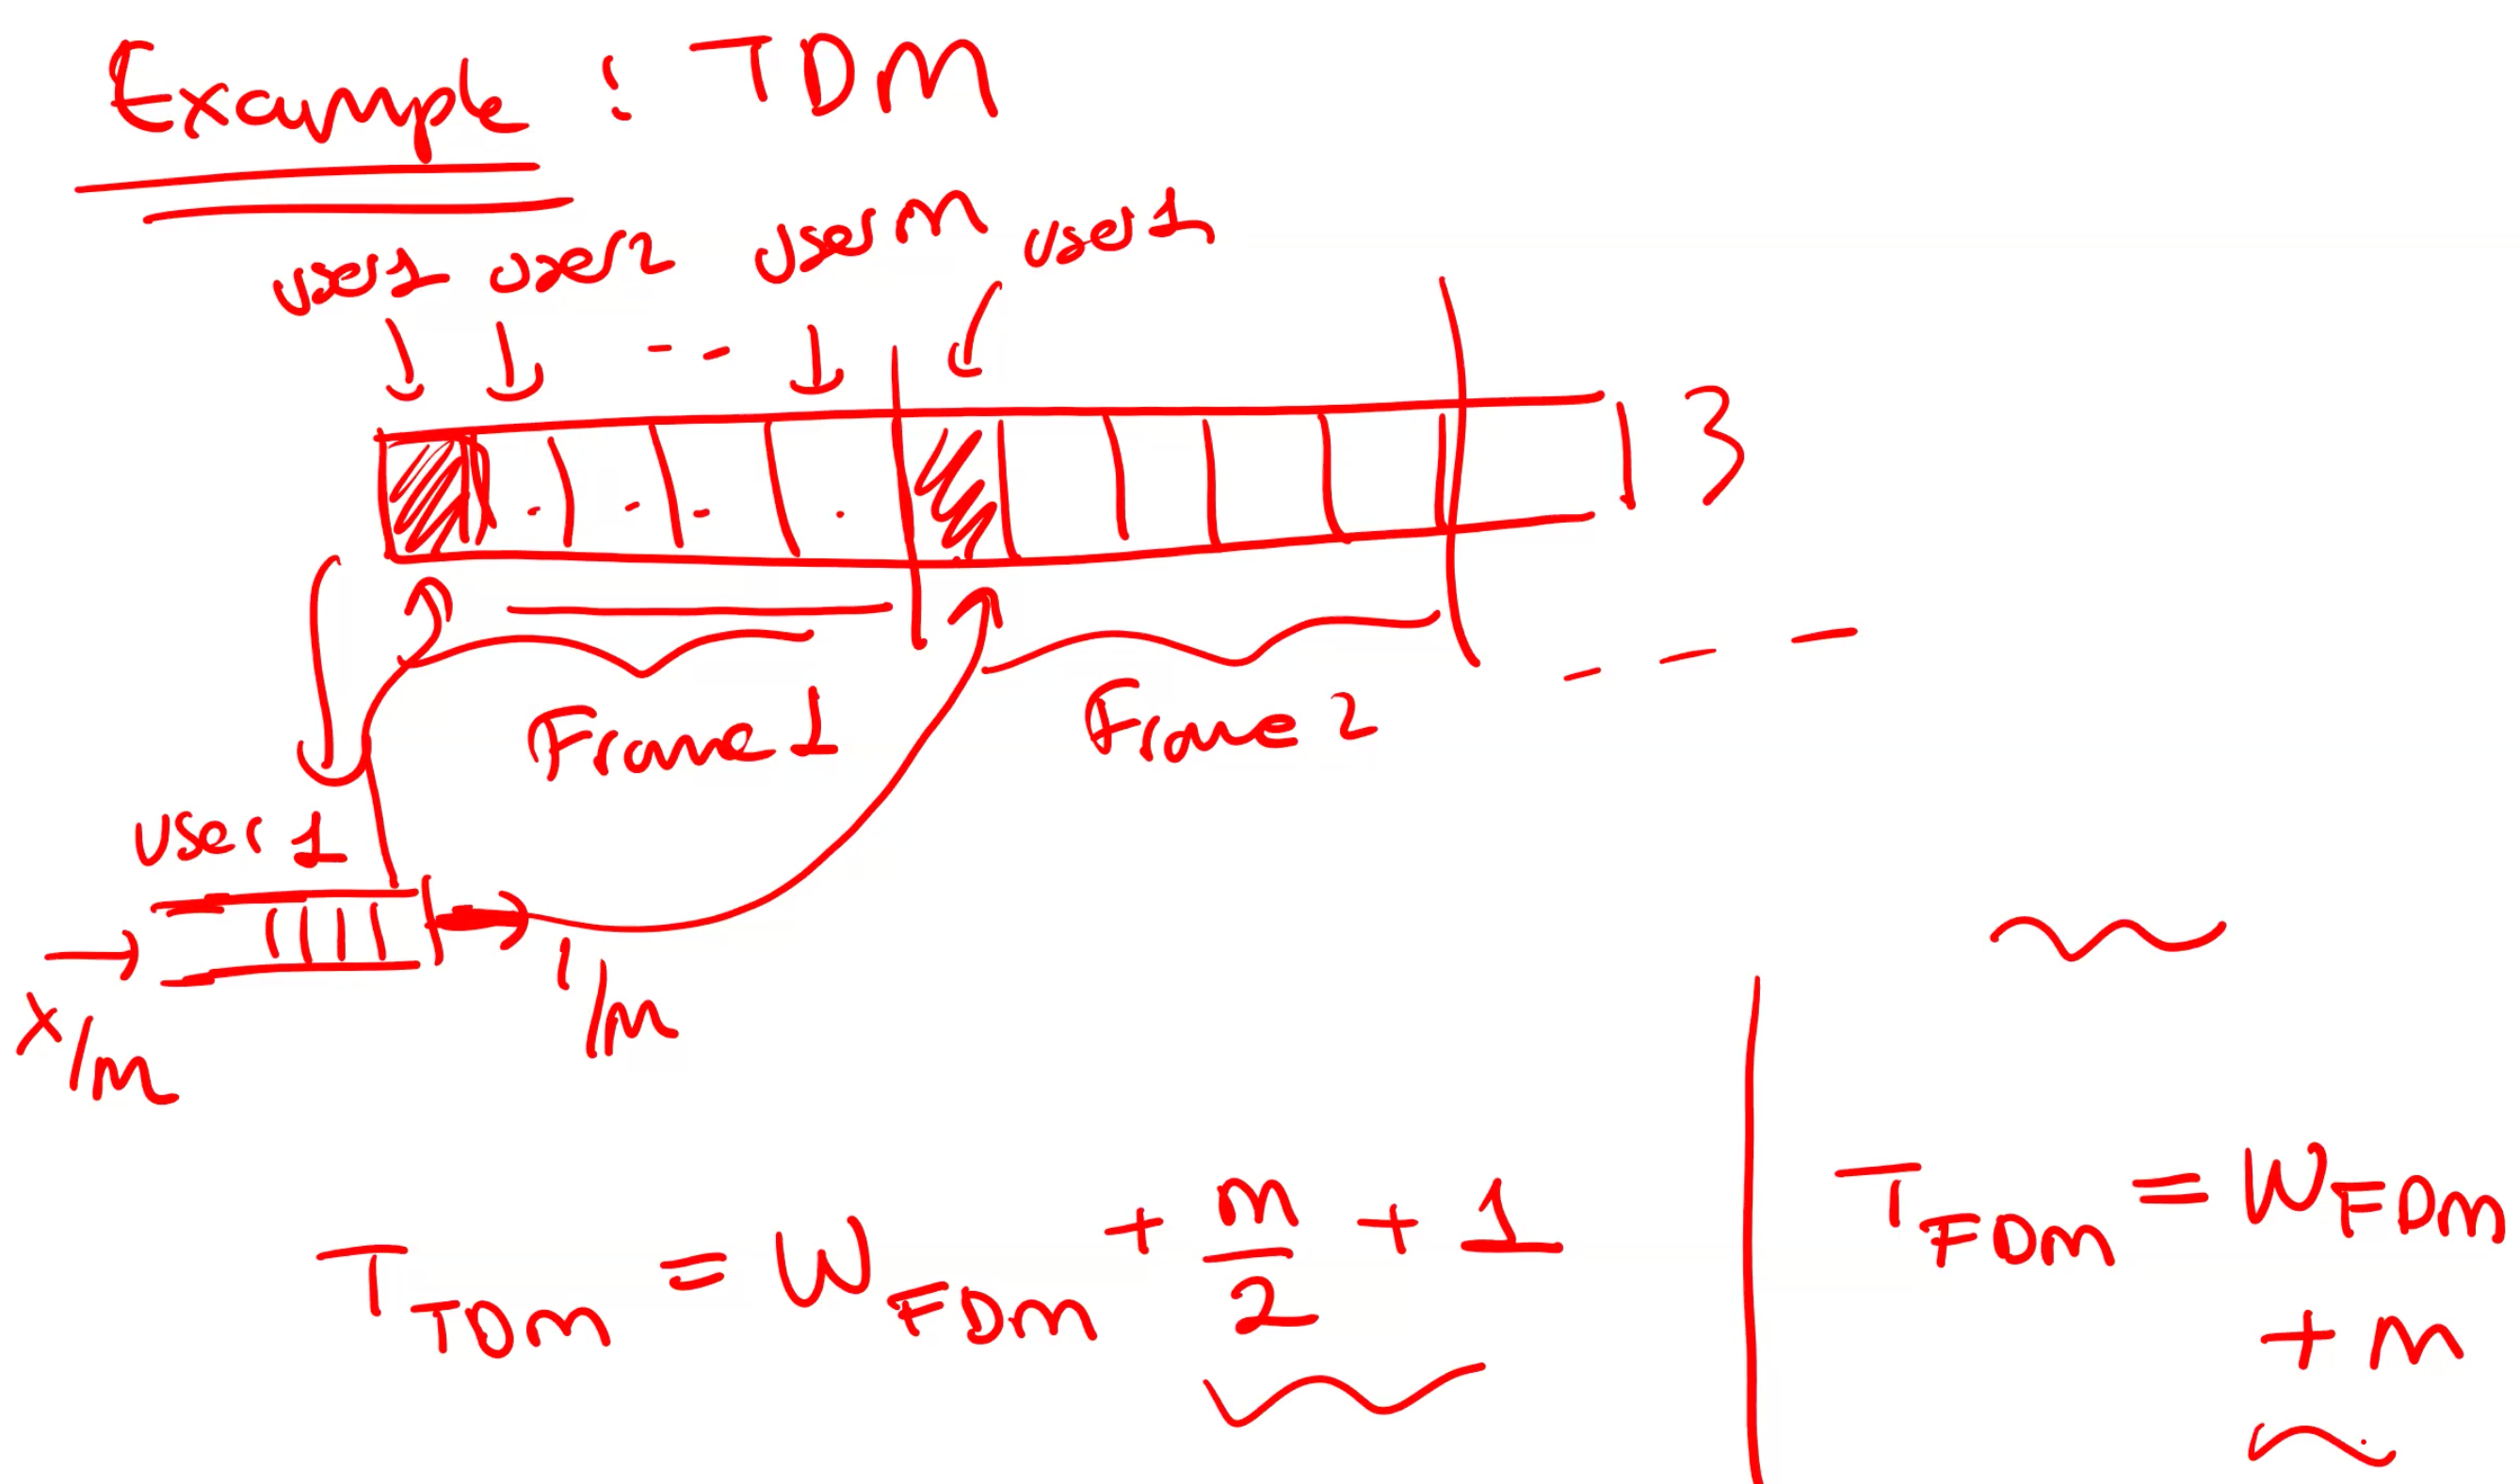 Example : TDM
user1 user2 -- userm user1
Frame1 Frame2 - - -
user 1
λ/m
1/m
T_TDM = W_FDM + m/2 + 1
T_FDM = W_FDM
+ m